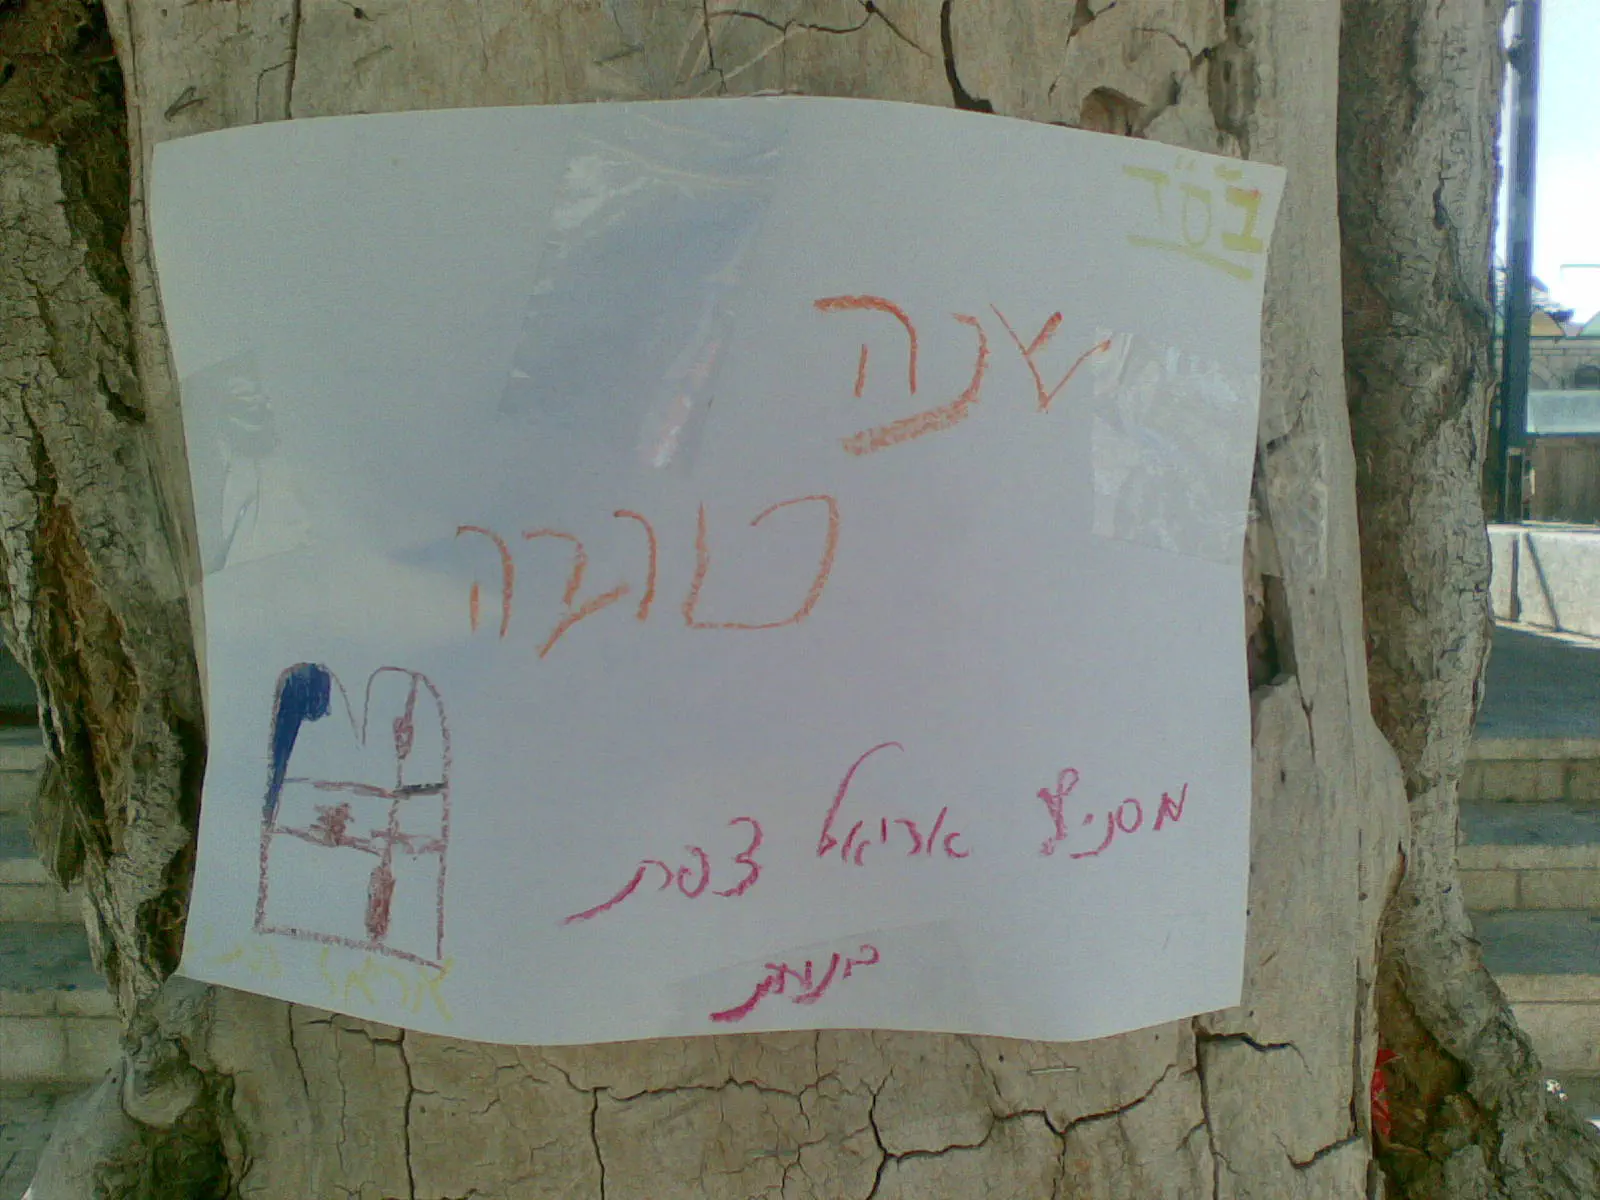 בס"ד
שנה
טובה
מסניף אריאל צפת
בנות
אראל